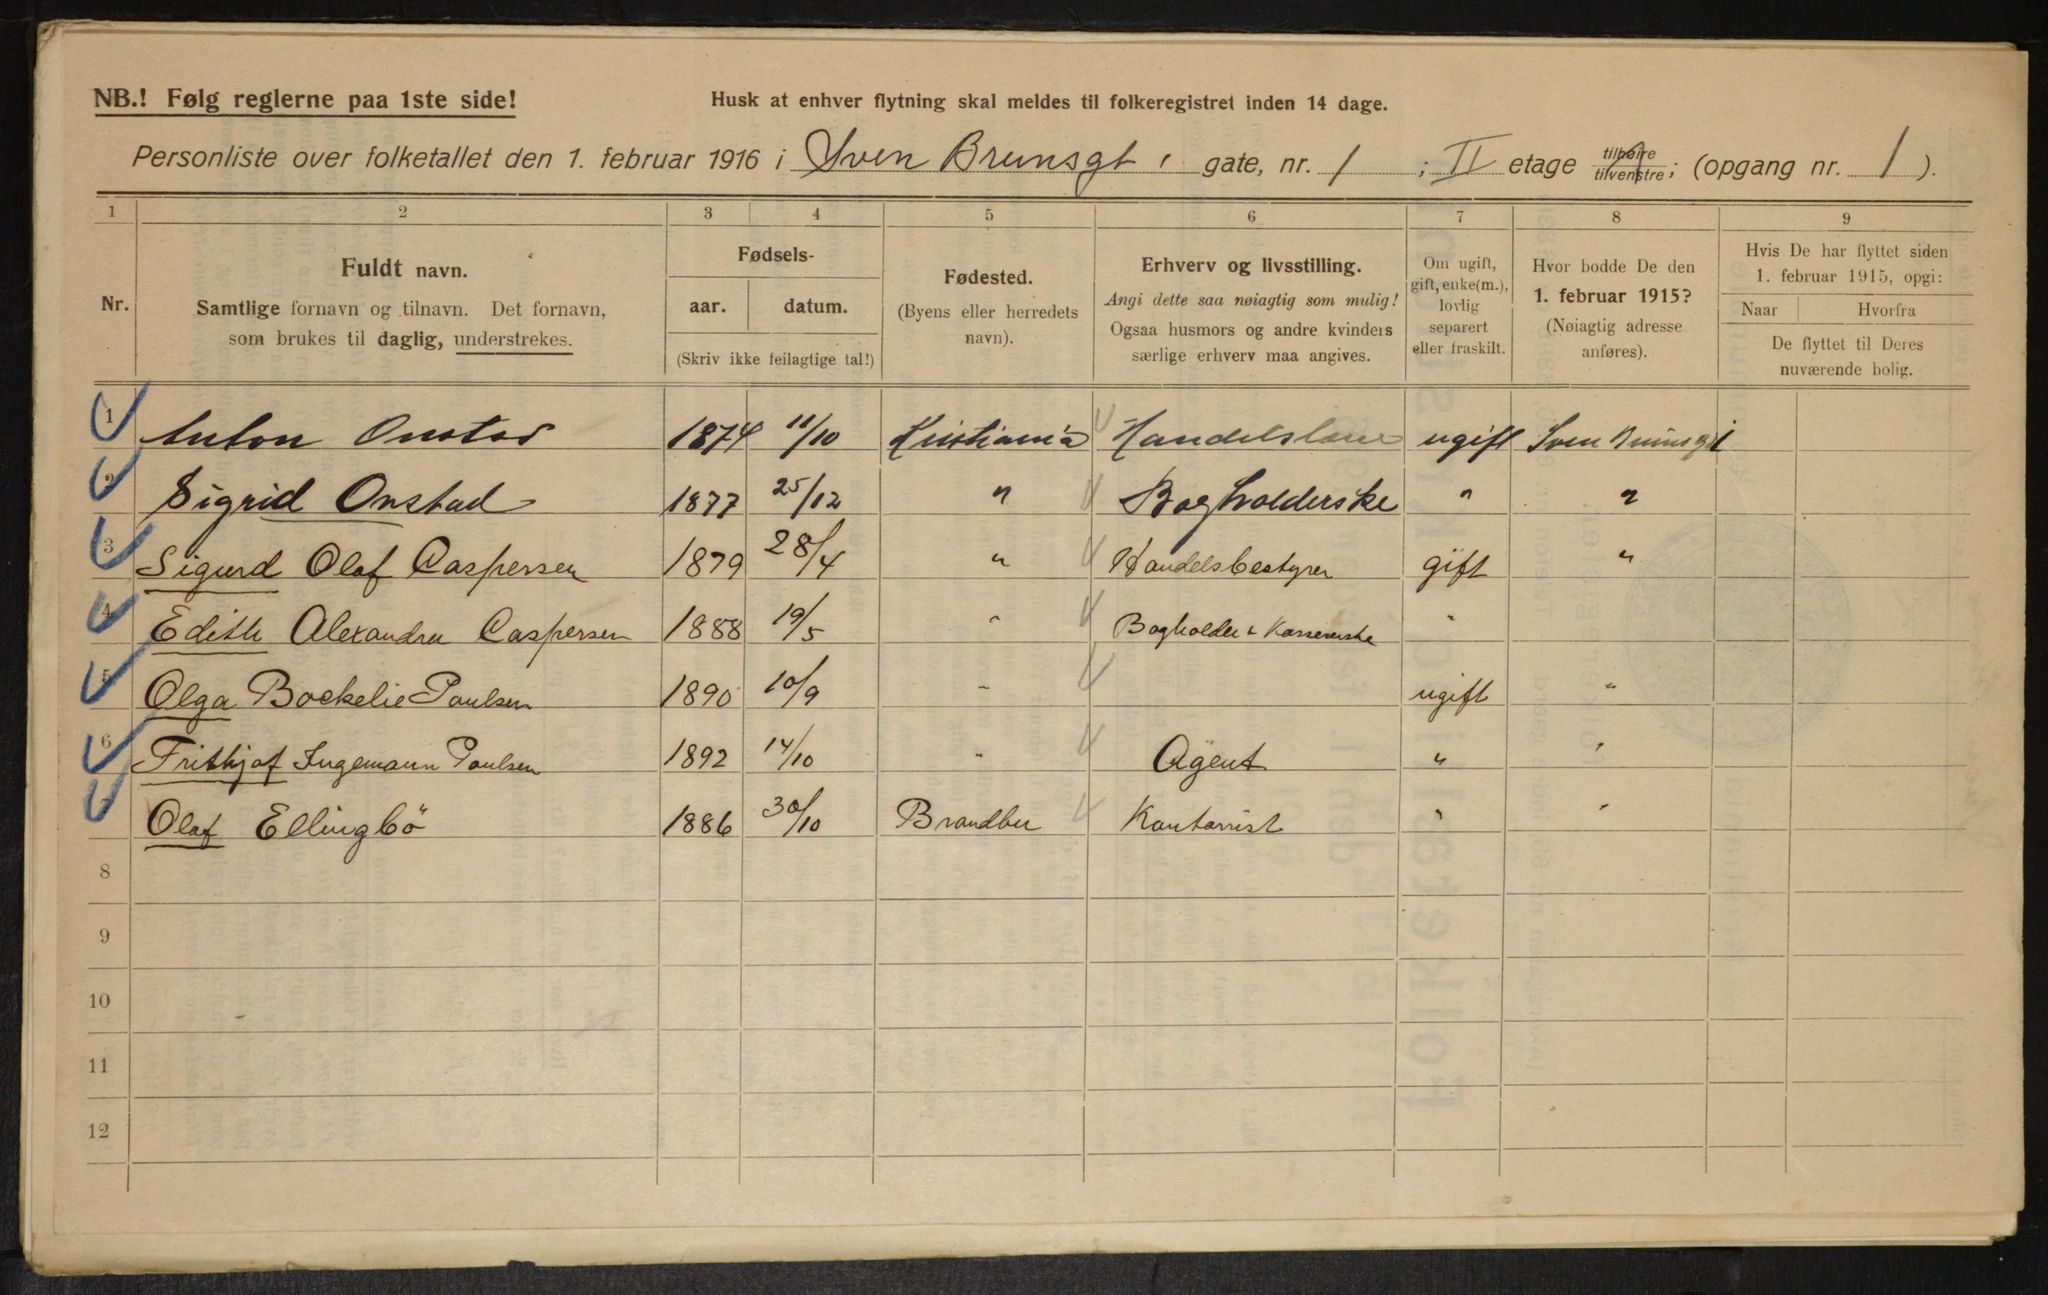 NB.! Følg reglerne paa 1ste side!
Husk at enhver flytning skal meldes til folkeregistret inden 14 dage.
Personliste over folketallet den 1. februar 1916 i Sven Brunsgt gate, nr. 1 ; II etage tilhøire tilvenstre; (opgang nr. 1 ).
1 2 3 4 5 6 7 8 9
Nr.
Fuldt navn.
Samtlige fornavn og tilnavn. Det fornavn,
som brukes til daglig, understrekes.
Fødsels-
aar. datum.
(Skriv ikke feilagtige tal!)
Fødested.
(Byens eller herredets
navn).
Erhverv og livsstilling.
Angi dette saa nøiagtig som mulig!
Ogsaa husmors og andre kvinders
særlige erhverv maa angives.
Om ugift,
gift, enke(m.),
lovlig
separert
eller fraskilt.
Hvor bodde De den
1. februar 1915?
(Nøiagtig adresse
anføres).
Hvis De har flyttet siden
1. februar 1915, opgi:
Naar Hvorfra
De flyttet til Deres
nuværende bolig.
1 Anton Onstad 1874 11/10 Kristiania ugift Sven Brunsgt
2 Sigrid Onstad 1877 25/12 " Bogholderske " "
3 Sigurd Olaf Caspersen 1879 28/4 " Handelsbestyrer gift "
4 Edith Alexandra Caspersen 1888 19/5 " Bogholder & Kassererske "
5 Olga Boekelie Paulsen 1890 10/9 " ugift "
6 Frithjof Ingemann Paulsen 1892 14/10 " Agent " "
7 Olaf Ellingbö 1886 30/10 Brandbu Kontorrist " "
8
9
10
11
12